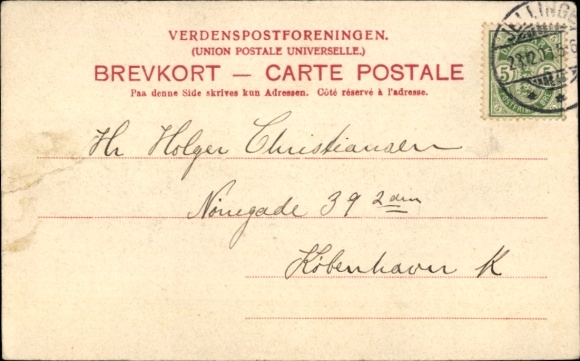 VERDENSPOSTFORENINGEN.
(UNION POSTALE UNIVERSELLE.)
BREVKORT — CARTE POSTALE
Paa denne Side skrives kun Adressen. Côté réservé à l'adresse.
Hr Holger Christiansen
Nørregade 39 2den
København K